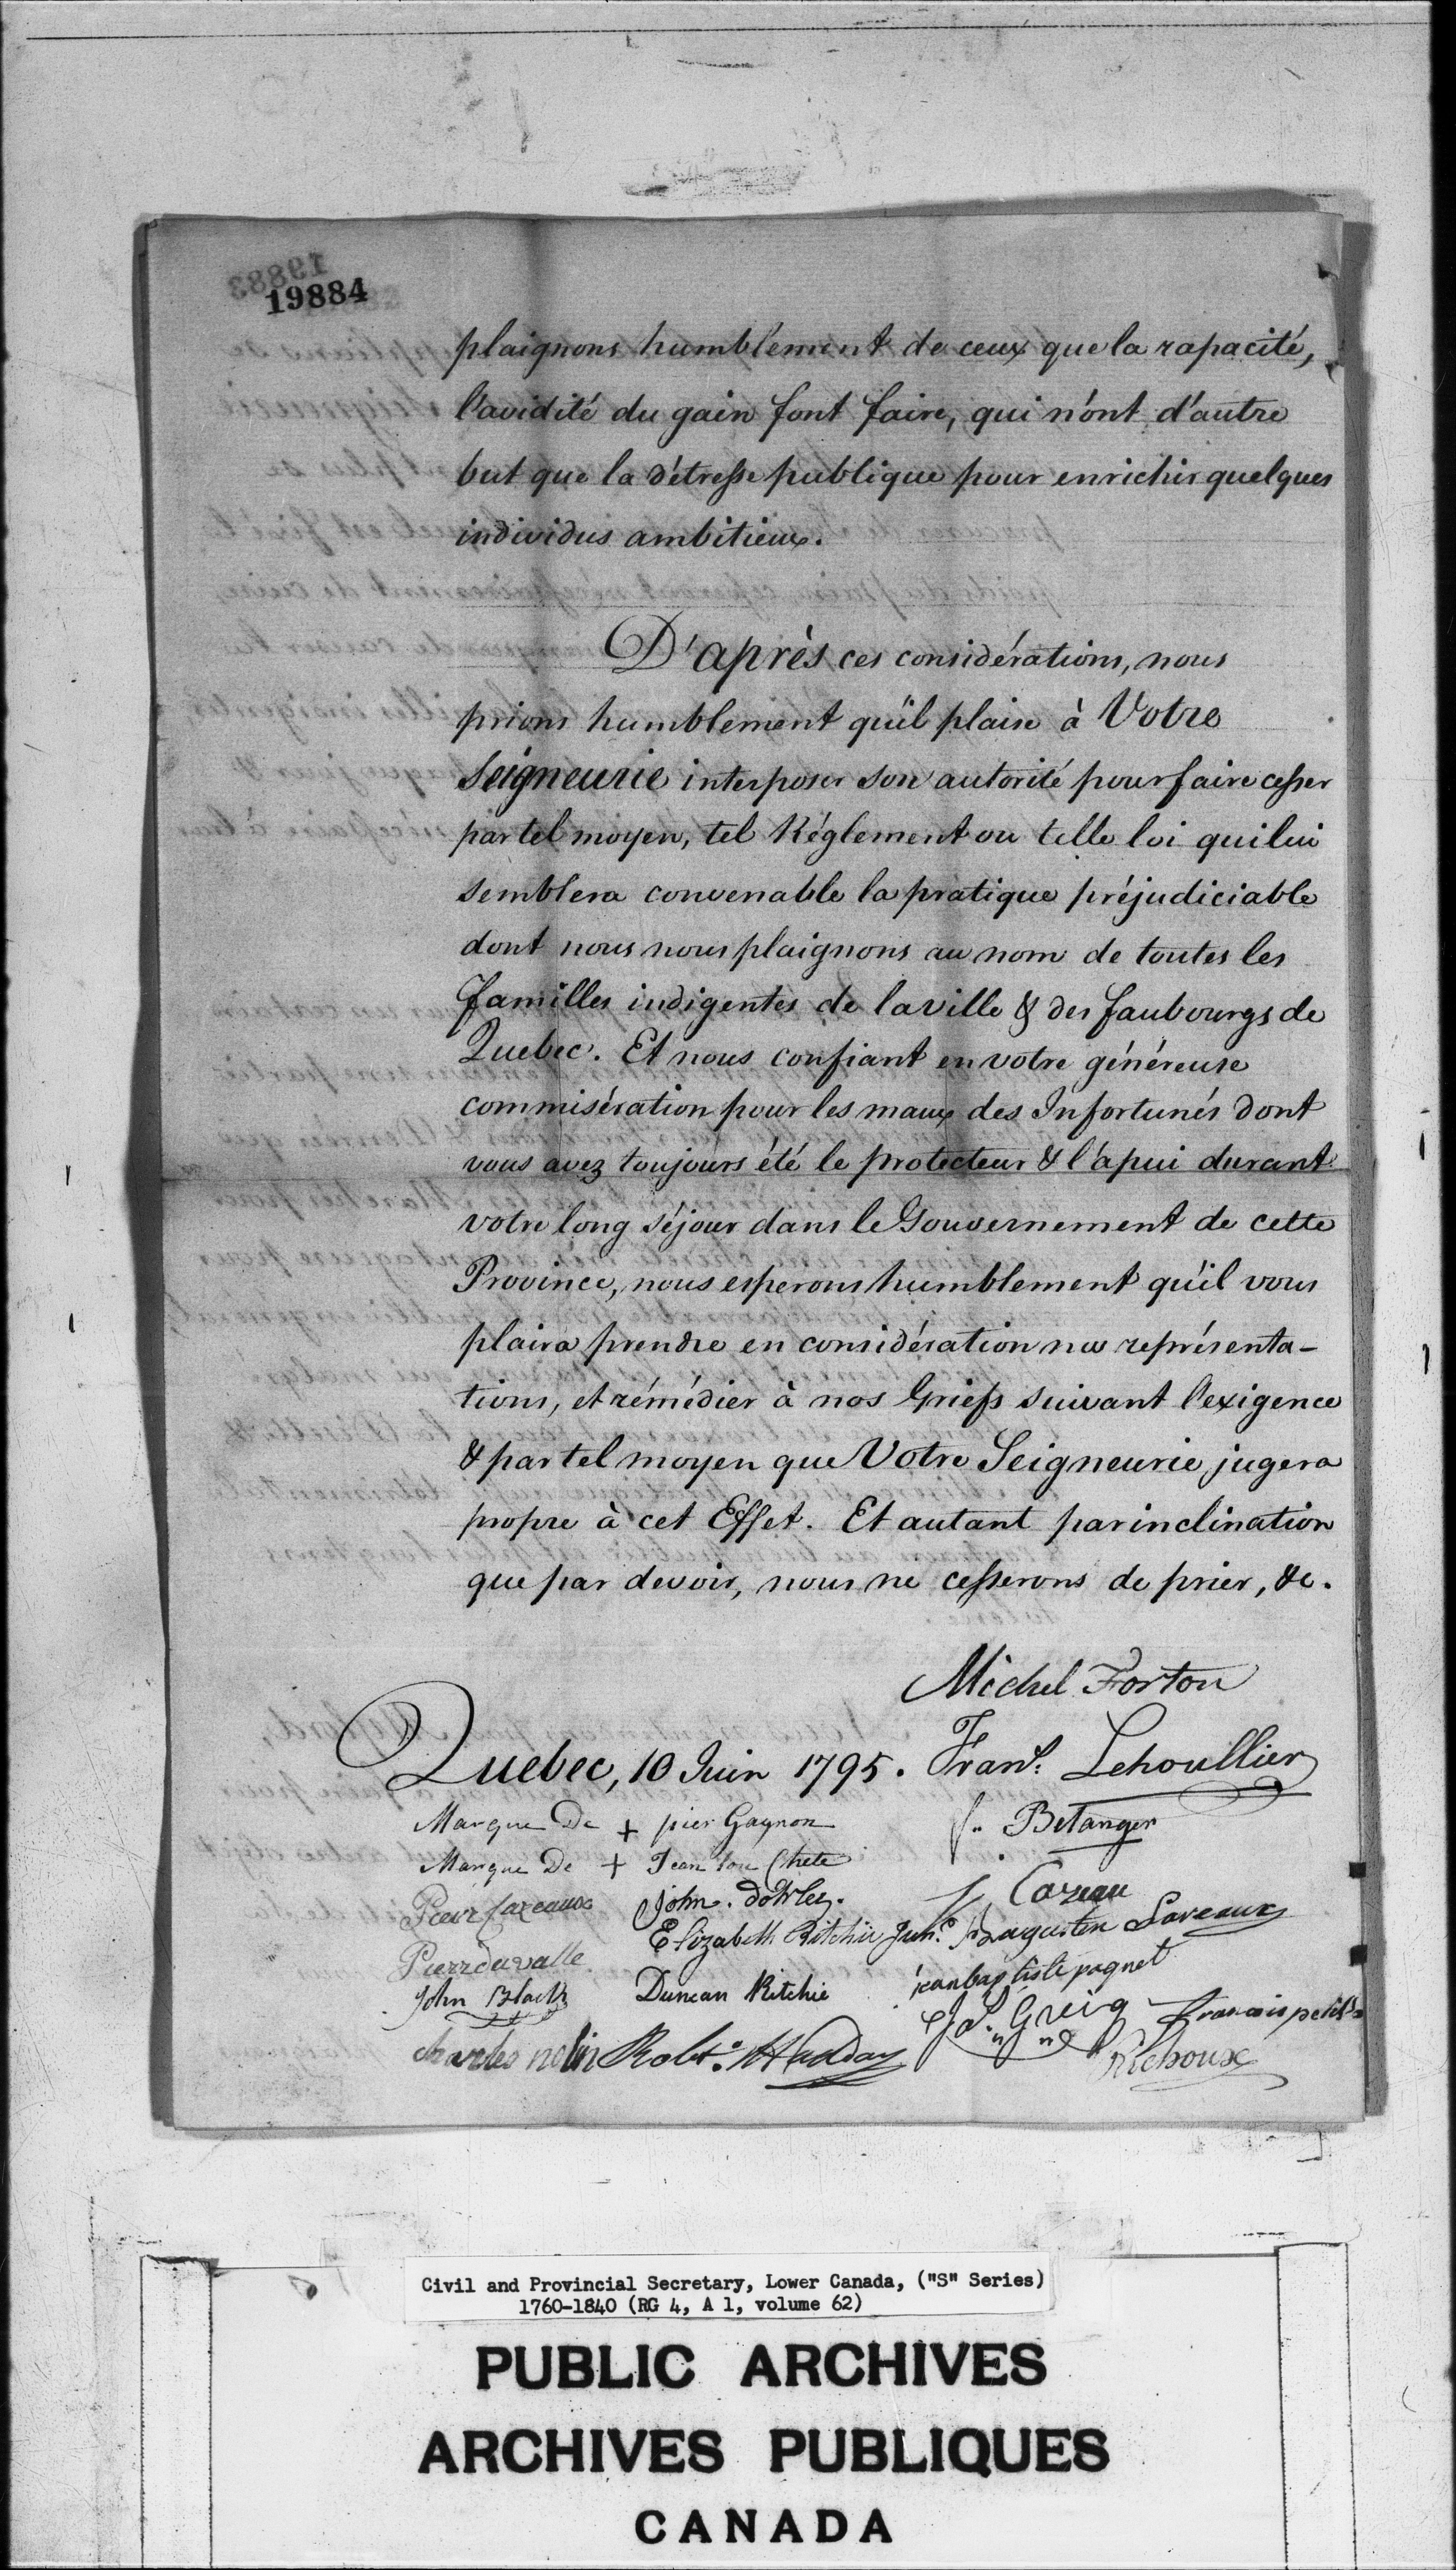 19883
19884
plaignons humblement de ceux que la rapacité,
l'avidité du gain font faire, qui n'ont d'autre
but que la détresse publique pour enrichir quelques
individus ambitieux.
D'après ces considérations, nous
prions humblement qu'il plaise à Votre
Seigneurie interposer son autorité pour faire cesser
par tel moyen, tel Réglement ou telle loi qui lui
semblera convenable la pratique préjudiciable
dont nous nous plaignons au nom de toutes les
familles indigentes de la ville & des faubourgs de
Quebec. Et nous confiant en votre généreuse
commisération pour les maux des Infortunés dont
vous avez toujours été le protecteur & l'apui durant
votre long séjour dans le Gouvernement de cette
Province, nous esperons humblement qu'il vous
plaira prendre en considération nos représenta-
tions, et rémédier à nos Griefs suivant l'exigence
& par tel moyen que Votre Seigneurie jugera
propre à cet Effet. Et autant par inclination
que par devoir, nous ne cesserons de prier, &c.
Michel Forton
Quebec, 10 Juin 1795. Frans. Lehoullier
Marque De + pier Gagnon f.. Belanger
Marque De + Jean
J Cazeau
Pierr cazeaux John. dowley.
Elizabeth Ritchie Junr. Augustin Laveaux
Pierre duvalle
jean baptiste paquet
John Black Duncan Ritchie
Jas. Greig francois petit
charles nolin Robt. Hadday
Civil and Provincial Secretary, Lower Canada, ("S" Series)
1760-1840 (RG 4, A 1, volume 62)
PUBLIC ARCHIVES
ARCHIVES PUBLIQUES
CANADA